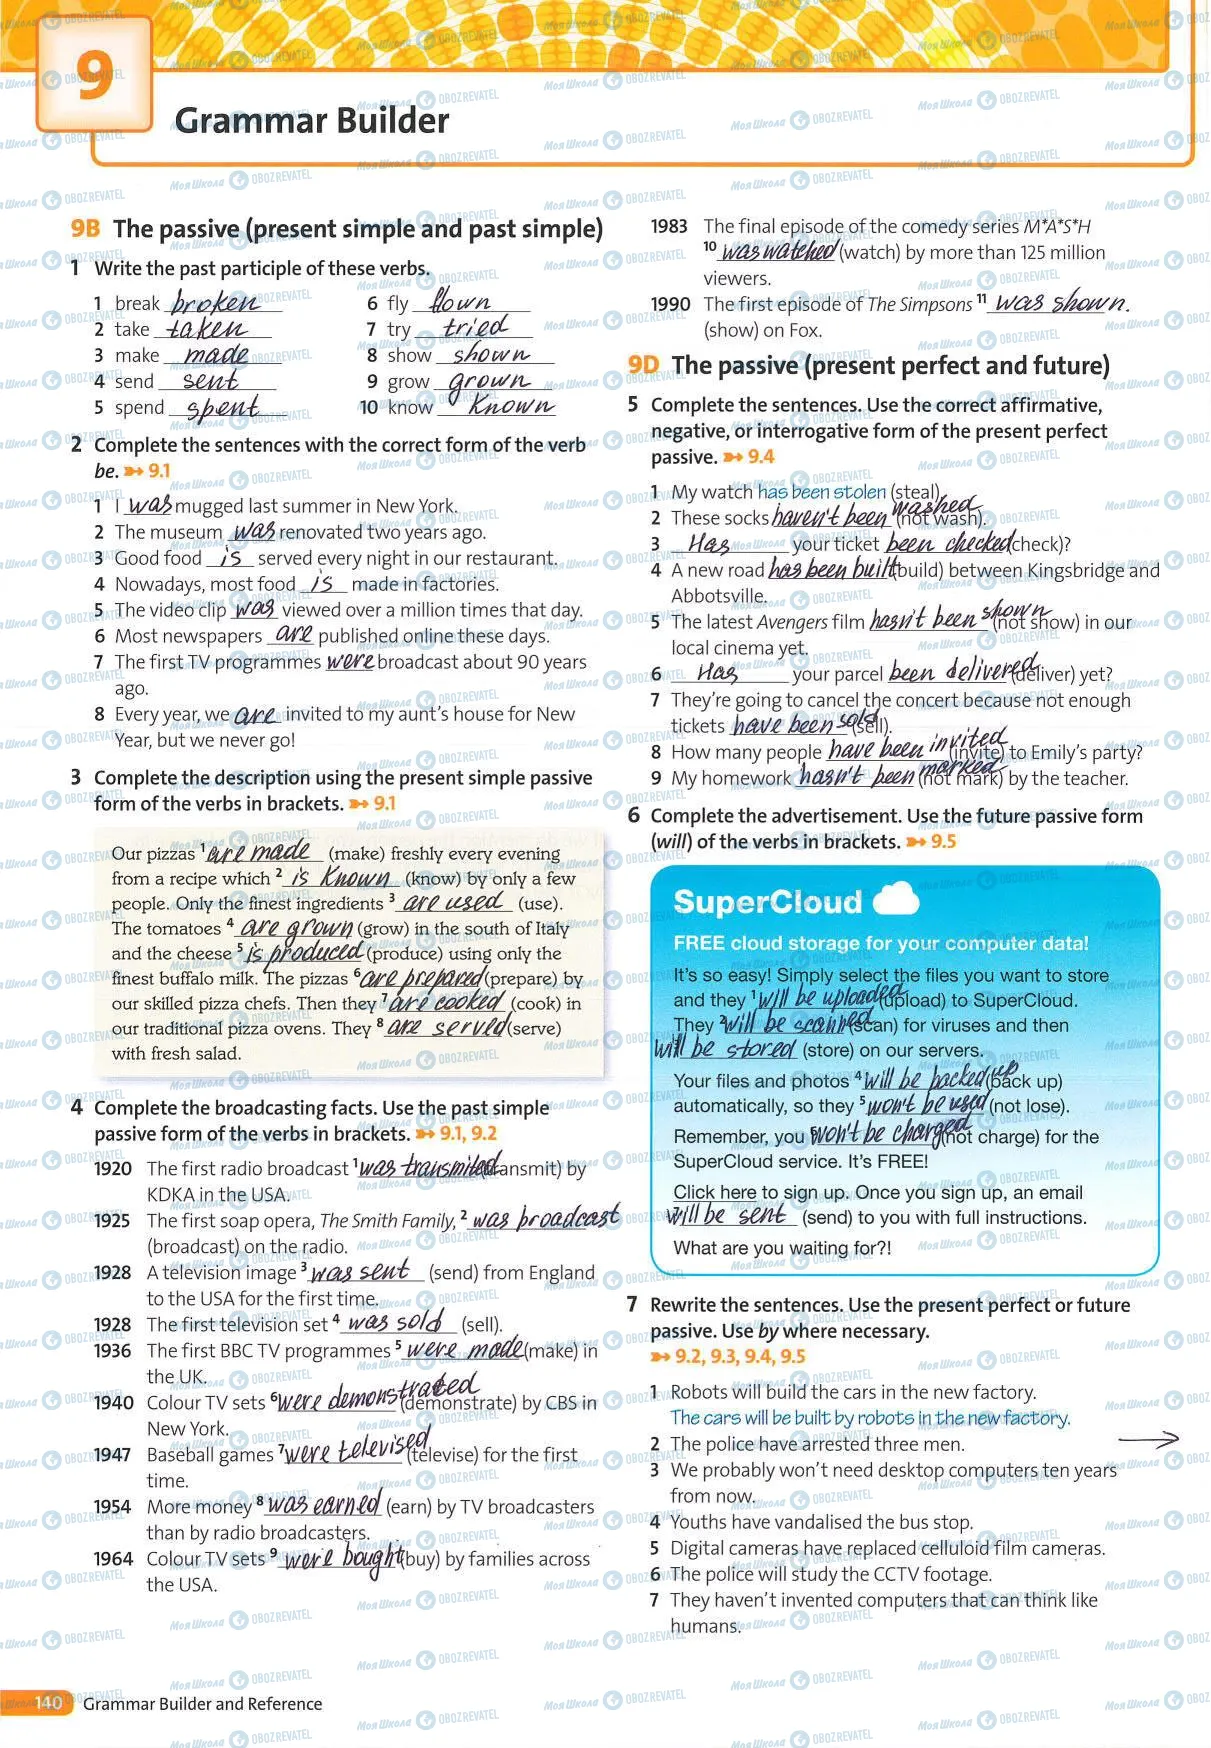 9
Grammar Builder
9B The passive (present simple and past simple)
1 Write the past participle of these verbs.
1 break broken
2 take taken
3 make made
4 send sent
5 spend spent
6 fly flown
7 try tried
8 show shown
9 grow grown
10 know known
2 Complete the sentences with the correct form of the verb
be. ➽ 9.1
1 I was mugged last summer in New York.
2 The museum was renovated two years ago.
3 Good food is served every night in our restaurant.
4 Nowadays, most food is made in factories.
5 The video clip was viewed over a million times that day.
6 Most newspapers are published online these days.
7 The first TV programmes were broadcast about 90 years
ago.
8 Every year, we are invited to my aunt's house for New
Year, but we never go!
3 Complete the description using the present simple passive
form of the verbs in brackets. ➽ 9.1
Our pizzas 1 are made (make) freshly every evening
from a recipe which 2 is known (know) by only a few
people. Only the finest ingredients 3 are used (use).
The tomatoes 4 are grown (grow) in the south of Italy
and the cheese 5 is produced (produce) using only the
finest buffalo milk. The pizzas 6 are prepared (prepare) by
our skilled pizza chefs. Then they 7 are cooked (cook) in
our traditional pizza ovens. They 8 are served (serve)
with fresh salad.
4 Complete the broadcasting facts. Use the past simple
passive form of the verbs in brackets. ➽ 9.1, 9.2
1920 The first radio broadcast 1 was transmited (transmit) by
KDKA in the USA.
1925 The first soap opera, The Smith Family, 2 was broadcast
(broadcast) on the radio.
1928 A television image 3 was sent (send) from England
to the USA for the first time.
1928 The first television set 4 was sold (sell).
1936 The first BBC TV programmes 5 were made (make) in
the UK.
1940 Colour TV sets 6 were demonstrated (demonstrate) by CBS in
New York.
1947 Baseball games 7 were televised (televise) for the first
time.
1954 More money 8 was earned (earn) by TV broadcasters
than by radio broadcasters.
1964 Colour TV sets 9 were bought (buy) by families across
the USA.
1983 The final episode of the comedy series M*A*S*H
10 was watched (watch) by more than 125 million
viewers.
1990 The first episode of The Simpsons 11 was shown.
(show) on Fox.
9D The passive (present perfect and future)
5 Complete the sentences. Use the correct affirmative,
negative, or interrogative form of the present perfect
passive. ➽ 9.4
1 My watch has been stolen (steal).
2 These socks haven't been washed (not wash).
3 Has your ticket been checked (check)?
4 A new road has been built (build) between Kingsbridge and
Abbotsville.
5 The latest Avengers film hasn't been shown (not show) in our
local cinema yet.
6 Has your parcel been delivered (deliver) yet?
7 They're going to cancel the concert because not enough
tickets have been sold (sell).
8 How many people have been invited (invite) to Emily's party?
9 My homework hasn't been marked (not mark) by the teacher.
6 Complete the advertisement. Use the future passive form
(will) of the verbs in brackets. ➽ 9.5
SuperCloud
FREE cloud storage for your computer data!
It's so easy! Simply select the files you want to store
and they 1 will be uploaded (upload) to SuperCloud.
They 2 will be scanned (scan) for viruses and then
will be stored (store) on our servers.
Your files and photos 4 will be backed up (back up)
automatically, so they 5 won't be used (not lose).
Remember, you won't be charged (not charge) for the
SuperCloud service. It's FREE!
Click here to sign up. Once you sign up, an email
will be sent (send) to you with full instructions.
What are you waiting for?!
7 Rewrite the sentences. Use the present perfect or future
passive. Use by where necessary.
➽ 9.2, 9.3, 9.4, 9.5
1 Robots will build the cars in the new factory.
The cars will be built by robots in the new factory.
2 The police have arrested three men.
3 We probably won't need desktop computers ten years
from now.
4 Youths have vandalised the bus stop.
5 Digital cameras have replaced celluloid film cameras.
6 The police will study the CCTV footage.
7 They haven't invented computers that can think like
humans.
140 Grammar Builder and Reference
Моя Школа OBOZREVATEL